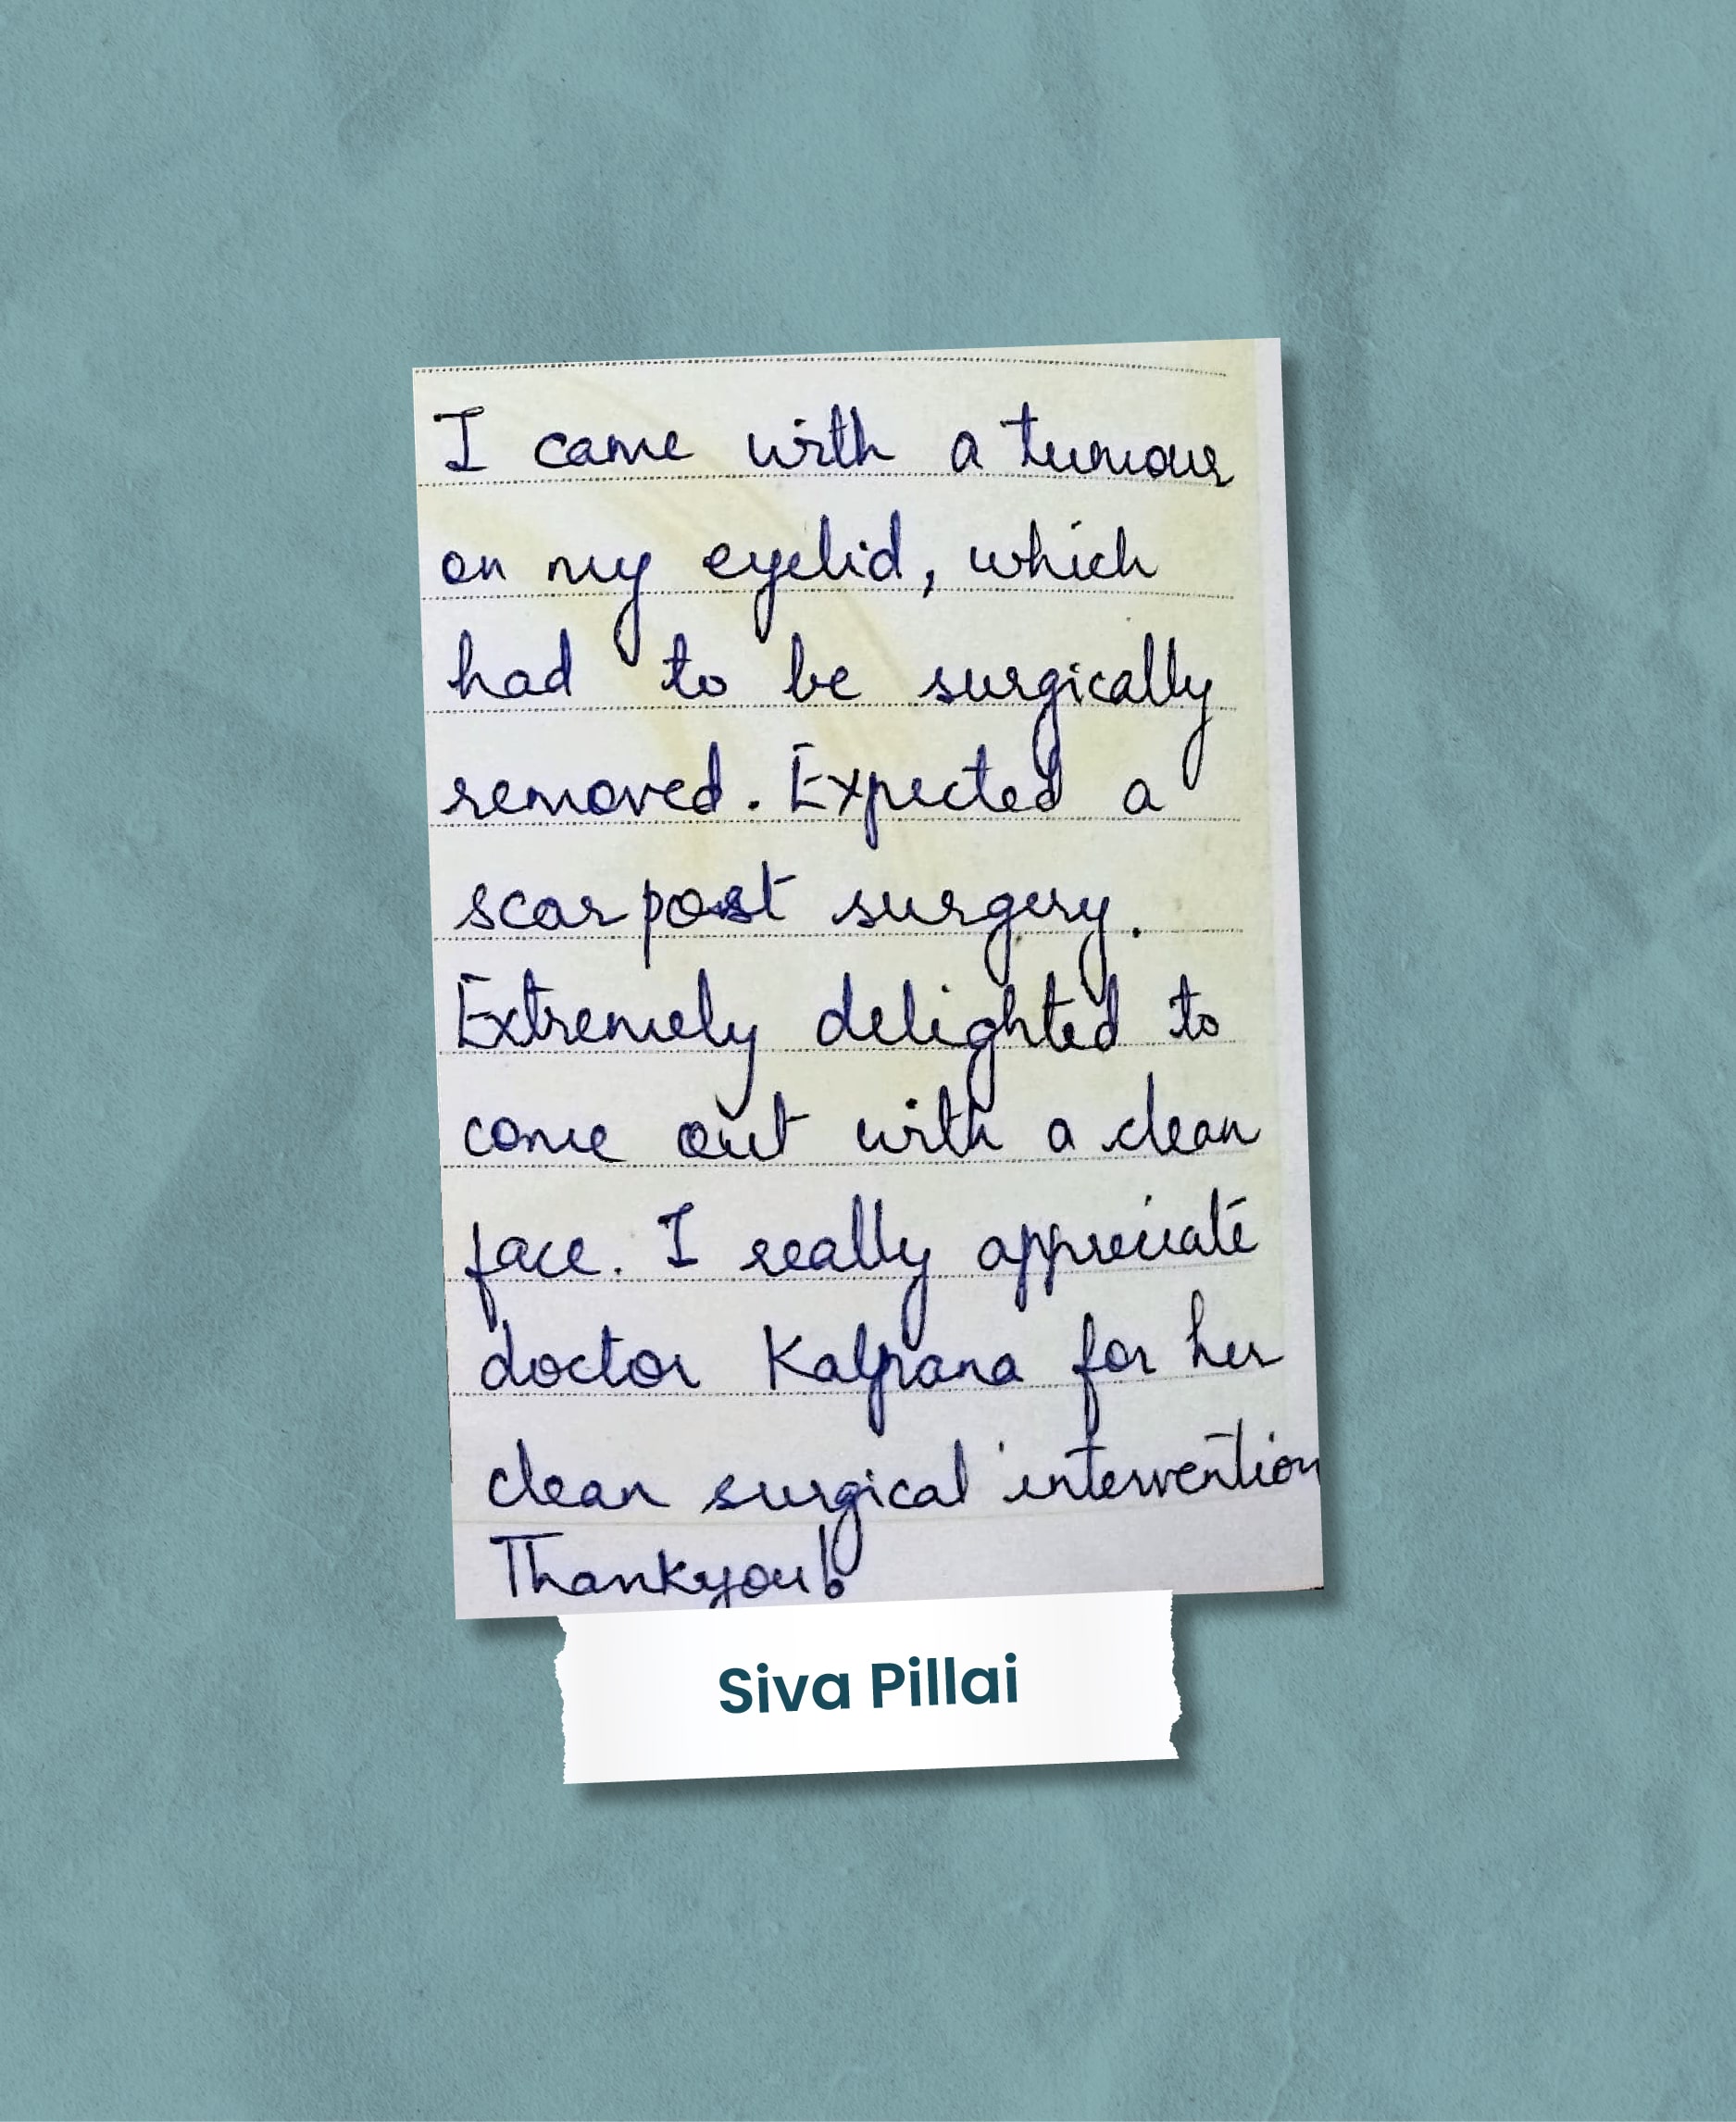 I came with a tumour
on my eyelid, which
had to be surgically
removed. Expected a
scar post surgery.
Extremely delighted to
come out with a clean
face. I really appreciate
doctor Kalpana for her
clean surgical intervention
Thankyou!
Siva Pillai